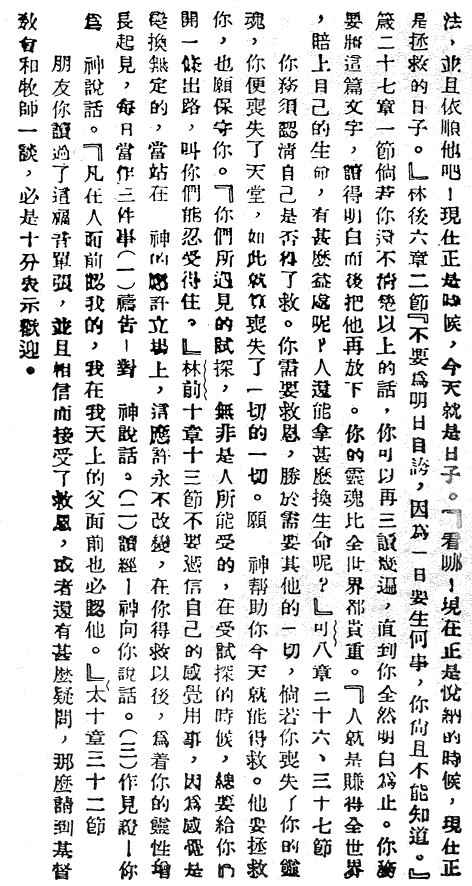 法，並且依順他吧！現在正是時候，今天就是日子。『看哪！現在正是悅納的時候，現在正
是拯救的日子。』林後六章二節『不要爲明日自誇，因爲一日要生何事，你尙且不能知道。』
箴二十七章一節倘若你沒不淸楚以上的話，你可以再三讀幾遍，直到你全然明白爲止。你務
要將這篇文字，讀得明白而後把他再放下。你的靈魂比全世界都貴重。『人就是賺得全世界
，賠上自己的生命，有甚麽益處呢？人還能拿甚麽換生命呢？』可八章三十六、三十七節
　　你務須認淸自己是否得了救。你需要救恩，勝於需要其他的一切，倘若你喪失了你的靈
魂，你便喪失了天堂，如此就算喪失了一切的一切。願　神帮助你今天就能得救。他要拯救
你，也願保守你。『你們所遇見的試探，無非是人所能受的，在受試探的時候，總要給你們
開一條出路，叫你們能忍受得住。』林前十章十三節不要憑信自己的感覺用事，因爲感覺是
變換無定的，當站在　神的應許立塲上，這應許永不改變，在你得救以後，爲着你的靈性增
長起見，每日當作三件事（一）禱告－對　神說話。（二）讀經－神向你說話。（三）作見證－你
爲　神說話。『凡在人面前認我的，我在我天上的父面前也必認他。』太十章三十二節
　　朋友你讀過了這福音單張，並且相信而接受了救恩，或者還有甚麽疑問，那麽請到基督
敎會和牧師一談，必是十分表示歡迎。